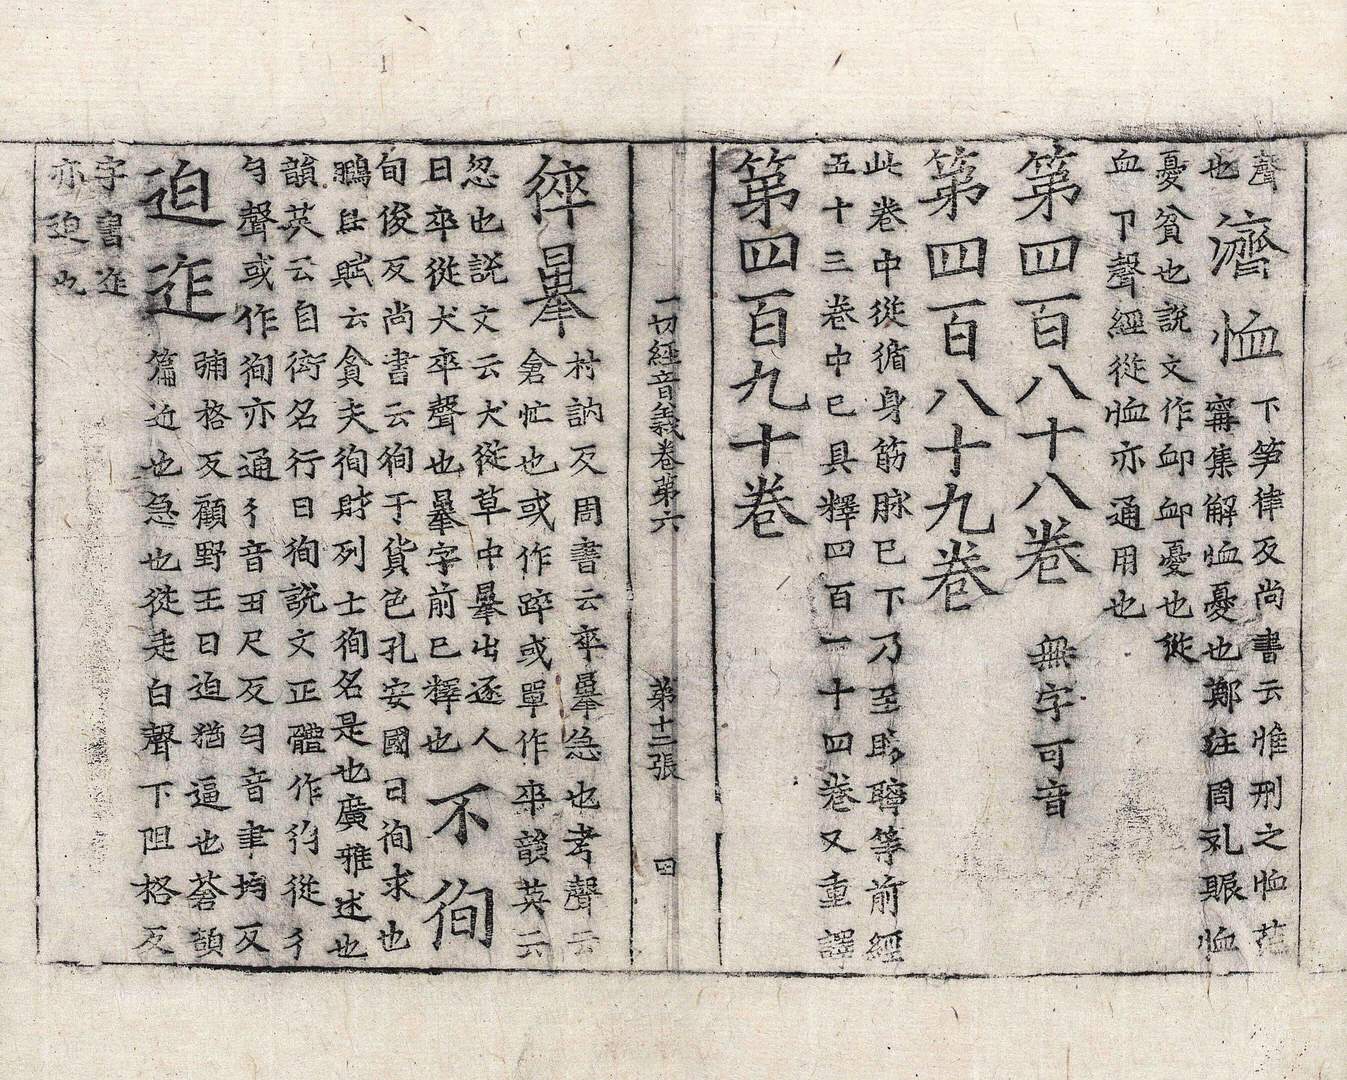 聲
也
濟恤
下笋律反尚書云惟刑之恤范
甯集解恤憂也鄭注周礼賑恤
憂貧也說文作卹卹憂也從
血卩聲經從恤亦通用也
第四百八十八卷
無字可音
第四百八十九卷
此卷中從循身筋脉已下乃至眄聹等前經
五十三卷中已具釋四百一十四卷又重譯
第四百九十卷
一切經音義卷第六 第十二張 田
猝㬥
村訥反周書云卒㬥急也考聲云
倉忙也或作踤或單作卒韻英云
忽也說文云犬從草中㬥出逐人
曰卒從犬卒聲也㬥字前已釋也
不徇
旬俊反尚書云徇于貨色孔安國曰徇求也
鵩鳥賦云貪夫徇財列士徇名是也廣雅述也
韻英云自衒名行曰徇說文正體作彴從彳
勻聲或作徇亦通彳音丑尺反勻音聿均反
迫迮
㛎格反顧野王曰迫猶逼也蒼頡
篇近也急也從辵白聲下阻格反
字書迮
亦迫也